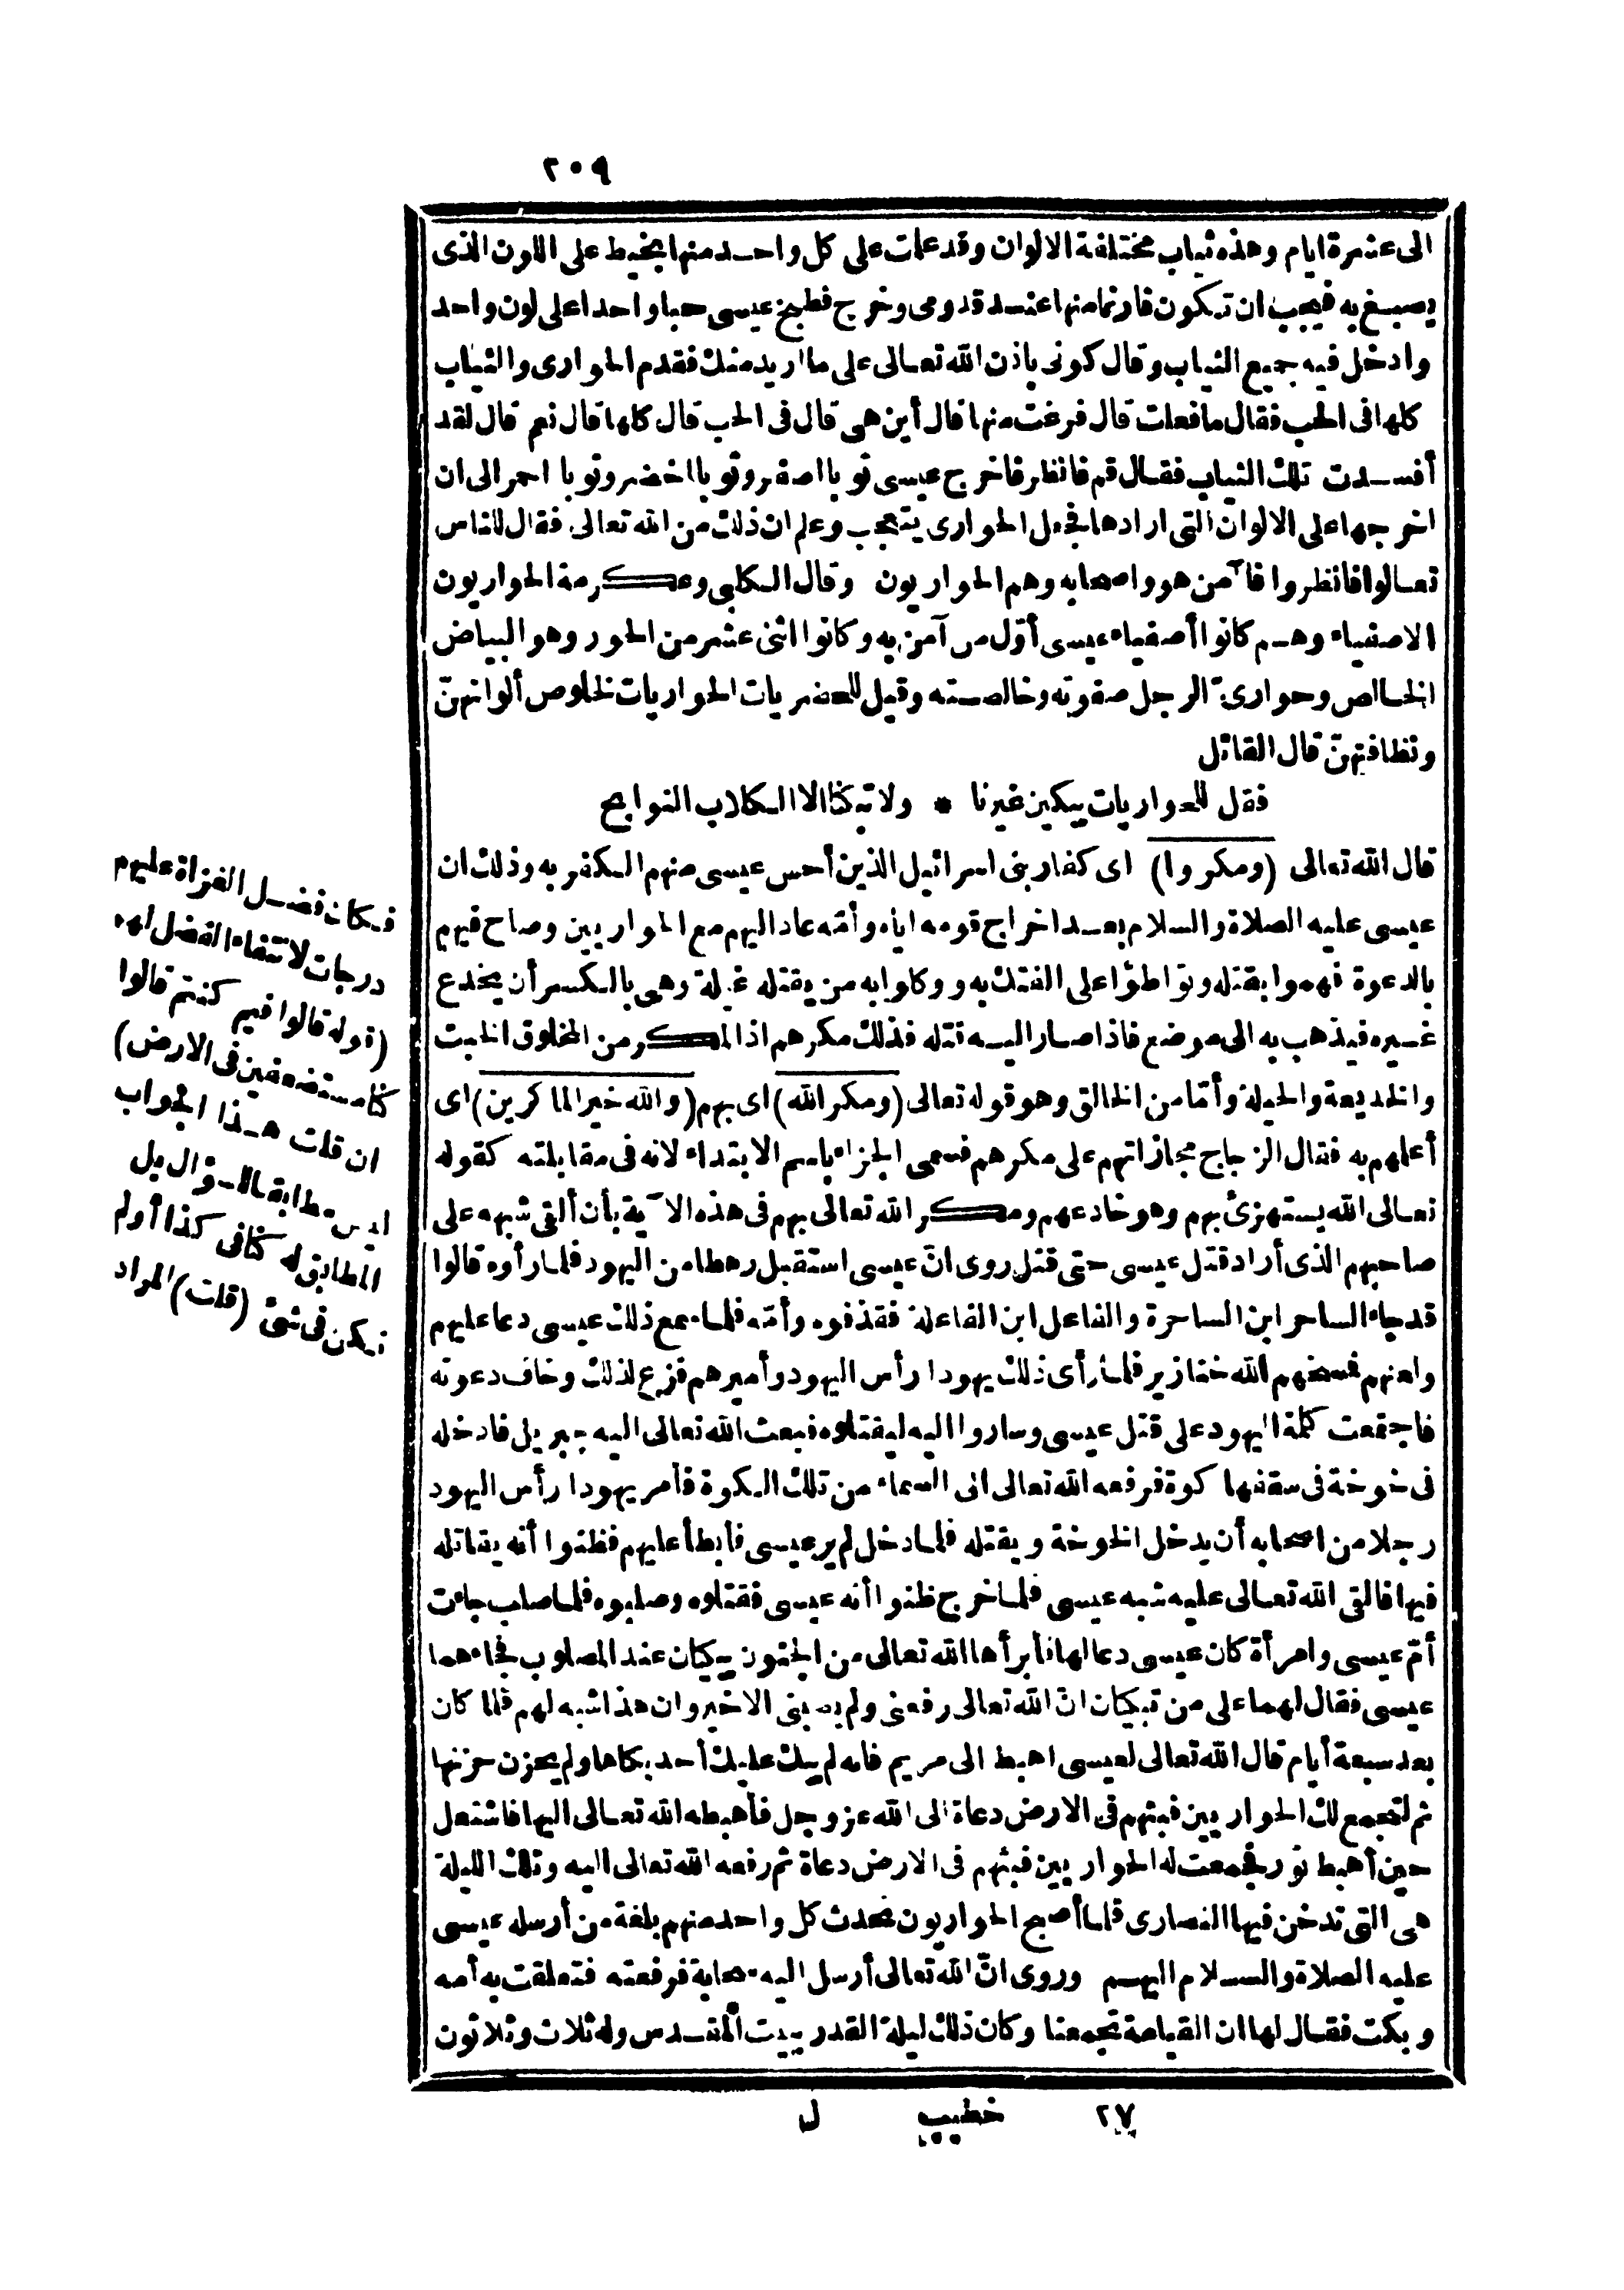 ٢٠٩
الى عشرة ايام وهذه ثياب مختلفة الالوان وقد علمت على كل واحد منها بخيط على اللون الذى
يصبغ به فيجب ان تكون فارغا منها عند قدومى وخرج فطبخ عيسى حبا واحدا على لون واحد
وادخل فيه جميع الثياب وقال كونى باذن الله تعالى على ما اريد منك فقدم الحوارى والثياب
كلها فى الحب فقال ما فعلت قال فرغت منها قال أين هى قال فى الحب قال كلها قال نعم قال لقد
أفسدت تلك الثياب فقال قم فانظر فاخرج عيسى ثوبا اصفر وثوبا اخضر وثوبا احمر الى ان
اخرجها على الالوان التى ارادها فجعل الحوارى يتعجب وعلم ان ذلك من الله تعالى فقال للناس
تعالوا فانظروا فآمن هو واصحابه وهم الحواريون وقال الكلبى وعكرمة الحواريون
الاصفياء وهم كانوا أصفياء عيسى أوّل من آمن به وكانوا اثنى عشر من الحور وهو البياض
الخالص وحوارىّ الرجل صفوته وخالصته وقيل للحضريات الحواريات لخلوص ألوانهنّ
ونظافتهنّ قال القائل
فقل للحواريات يبكين غيرنا * ولا تبكنا الا الكلاب النوابح
قال الله تعالى (ومكروا) اى كفار بنى اسرائيل الذين أحس عيسى منهم الكفر به وذلك ان
عيسى عليه الصلاة والسلام بعد اخراج قومه اياه وأمّه عاد اليهم مع الحواريين وصاح فيهم
بالدعوة فهموا بقتله وتواطؤا على الفتك به ووكلوا به من يقتله غيلة وهى بالكسر أن يخدع
غيره فيذهب به الى موضع فاذا صار اليه قتله فذلك مكرهم اذ المكر من المخلوق الخبث
والخديعة والحيلة وأمّا من الخالق وهو قوله تعالى (ومكر الله) اى بهم (والله خير الماكرين) اى
أعلمهم به فقال الزجاج مجازاتهم على مكرهم فسمى الجزاء باسم الابتداء لانه فى مقابلته كقوله
تعالى الله يستهزئ بهم وهو خادعهم ومكر الله تعالى بهم فى هذه الآية بأن ألقى شبهه على
صاحبهم الذى أراد قتل عيسى حتى قتل روى انّ عيسى استقبل رهطا من اليهود فلما رأوه قالوا
قد جاء الساحر ابن الساحرة والفاعل ابن الفاعلة فقذفوه وأمّه فلما سمع ذلك عيسى دعا عليهم
ولعنهم فمسخهم الله خنازير فلما رأى ذلك يهودا رأس اليهود وأميرهم فزع لذلك وخاف دعوته
فاجتمعت كلمة اليهود على قتل عيسى وساروا اليه ليقتلوه فبعث الله تعالى اليه جبريل فادخله
فى خوخة فى سقفها كوة فرفعه الله تعالى الى السماء من تلك الكوة فأمر يهودا رأس اليهود
رجلا من اصحابه أن يدخل الخوخة ويقتله فلما دخل لم ير عيسى فأبطأ عليهم فظنوا أنه يقاتله
فيها فالقى الله تعالى عليه شبه عيسى فلما خرج ظنوا أنه عيسى فقتلوه وصلبوه فلما صلب جاءت
أمّ عيسى وامرأة كان عيسى دعا لها فأبرأها الله تعالى من الجنون يبكيان عند المصلوب فجاءهما
عيسى فقال لهما على من تبكيان انّ الله تعالى رفعنى ولم يصبنى الا خير وان هذا شبه لهم فلما كان
بعد سبعة أيام قال الله تعالى لعيسى اهبط الى مريم فانه لم يبك عليك أحد بكاها ولم يحزن حزنها
ثم لتجمع لك الحواريين فبثهم فى الارض دعاة الى الله عز وجل فأهبطه الله تعالى اليها فاشتعل
حين أهبط نور فجمعت له الحواريين فبثهم فى الارض دعاة ثم رفعه الله تعالى اليه وتلك الليلة
هى التى تدخن فيها النصارى فلما أصبح الحواريون تحدث كل واحد منهم بلغة من أرسله عيسى
عليه الصلاة والسلام اليهم وروى انّ الله تعالى أرسل اليه سحابة فرفعته فتعلقت به أمه
وبكت فقال لها ان القيامة تجمعنا وكان ذلك ليلة القدر ببيت المقدس وله ثلاث وثلاثون
فكان فضل الغزاة عليهم
درجات لانتفاء الفضل لهم
(قوله قالوا فيم كنتم قالوا
كنا مستضعفين فى الارض)
ان قلت هذا الجواب
ليس مطابقا للسؤال بل
المطابق له كنا فى كذا أو لم
نكن فى شئ (قلت) المراد
٢٧ خطيب ل